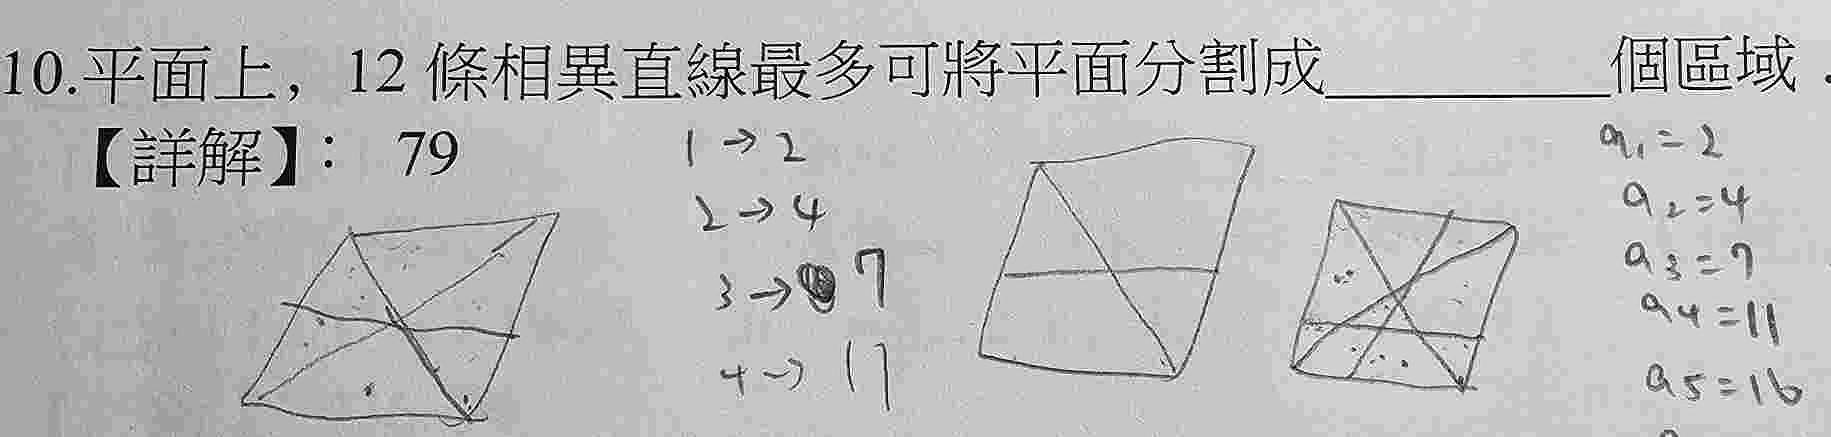 10.平面上，12 條相異直線最多可將平面分割成________個區域．
【詳解】： 79
1→2
2→4
3→7
4→11
a₁=2
a₂=4
a₃=7
a₄=11
a₅=16